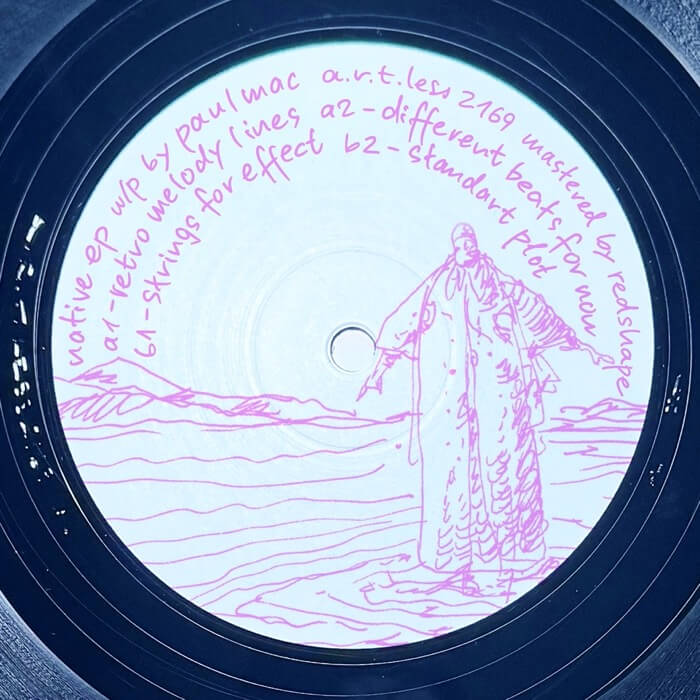 native ep w/p by paul mac a.r.t.less 2169 mastered by redshape
a1-retro melody lines a2-different beats for now
b1-skrings for effect b2-standart plot